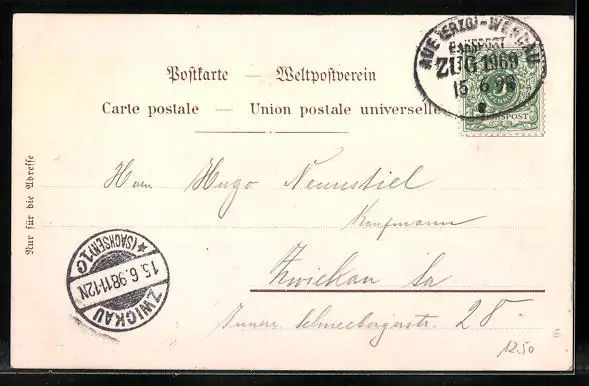 AUE (ERZG)-WERDAU
BAHNPOST
ZUG 1969
15 6 98
REICHSPOST
Postkarte — Weltpostverein
Carte postale — Union postale universelle
Nur für die Adresse
Herrn Hugo Neunstiel
Kaufmann
Zwickau Sa
Innere Schneebergerstr. 28
ZWICKAU
15.6.98 11-12N
* (SACHSEN) 1 c
12.50